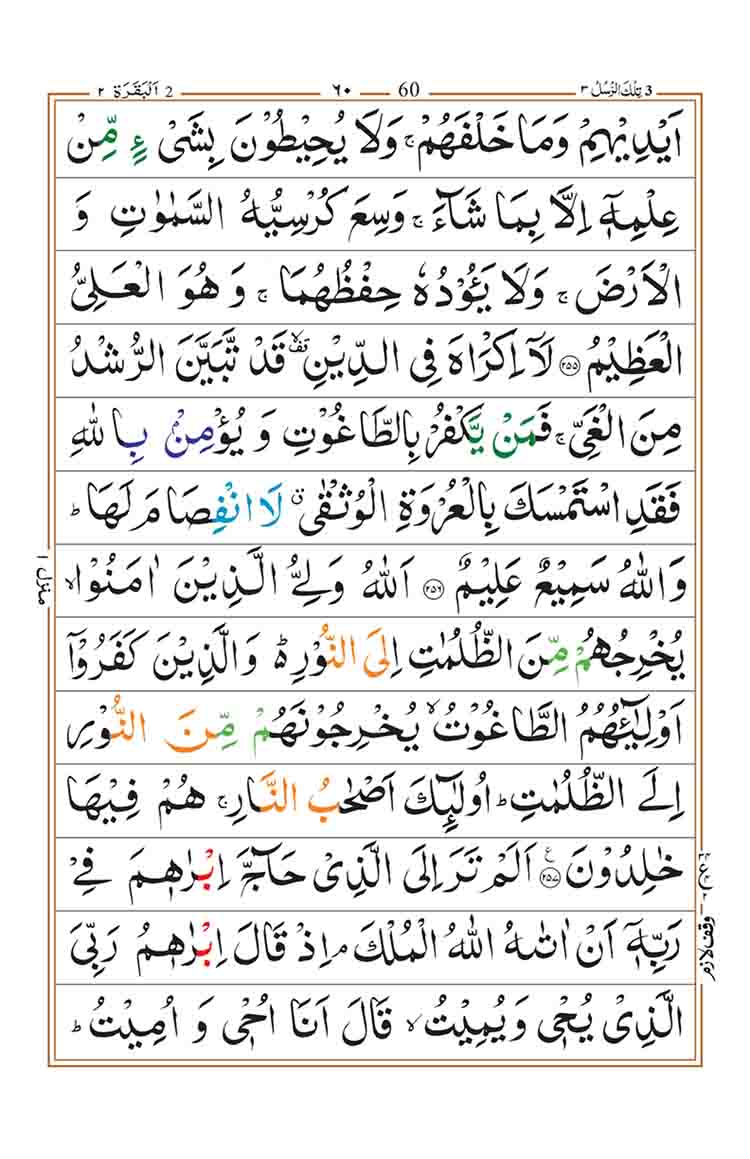 3 تِلْكَ الرُّسُلُ ٣ 60 ٦٠ 2 اَلْبَقَرَة ٢
اَيْدِيْهِمْ وَمَا خَلْفَهُمْ ۚ وَلَا يُحِيْطُوْنَ بِشَىْ ءٍ مِّنْ
عِلْمِهٖۤ اِلَّا بِمَا شَآءَ ۚ وَسِعَ كُرْسِيُّهُ السَّمٰوٰتِ وَ
الْاَرْضَ ۚ وَلَا يَـُٔوْدُهٗ حِفْظُهُمَا ۚ وَ هُوَ الْعَلِىُّ
الْعَظِيْمُ ﴿۲۵۵﴾ لَاۤ اِكْرَاهَ فِى الدِّيْنِ ۙ قف قَدْ تَّبَيَّنَ الرُّشْدُ
مِنَ الْغَىِّ ۚ فَمَنْ يَّكْفُرْ بِالطَّاغُوْتِ وَ يُؤْمِنْ بِاللّٰهِ
فَقَدِ اسْتَمْسَكَ بِالْعُرْوَةِ الْوُثْقٰى ۗ لَا انْفِصَامَ لَهَا ؕ
وَاللّٰهُ سَمِيْعٌ عَلِيْمٌ ﴿۲۵۶﴾ اَللّٰهُ وَلِىُّ الَّذِيْنَ اٰمَنُوْا ۙ
يُخْرِجُهُمْ مِّنَ الظُّلُمٰتِ اِلَى النُّوْرِ ؕ وَالَّذِيْنَ كَفَرُوْۤا
اَوْلِيٰٓـُٔهُمُ الطَّاغُوْتُ ۙ يُخْرِجُوْنَهُمْ مِّنَ النُّوْرِ
اِلَى الظُّلُمٰتِ ؕ اُولٰٓئِكَ اَصْحٰبُ النَّارِ ۚ هُمْ فِيْهَا
خٰلِدُوْنَ ﴿۲۵۷﴾ ع اَلَمْ تَرَ اِلَى الَّذِىْ حَآجَّ اِبْرٰهٖمَ فِىْ
رَبِّهٖۤ اَنْ اٰتٰٮهُ اللّٰهُ الْمُلْكَ ۘ اِذْ قَالَ اِبْرٰهٖمُ رَبِّىَ
الَّذِىْ يُحْىٖ وَيُمِيْتُ ۙ قَالَ اَنَا اُحْىٖ وَ اُمِيْتُ ؕ
منزل ١
ع
وقف لازم